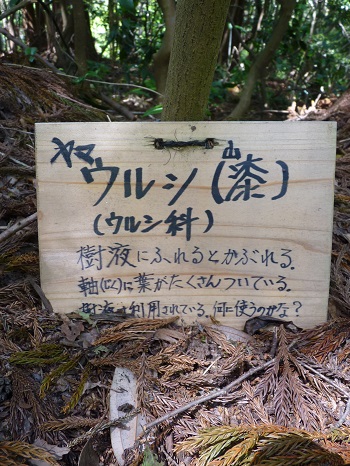 ヤマウルシ(山漆)
(ウルシ科)
樹液にふれるとかぶれる.
軸(じく)に葉がたくさんついている.
樹液は利用されている.何に使うのかな?